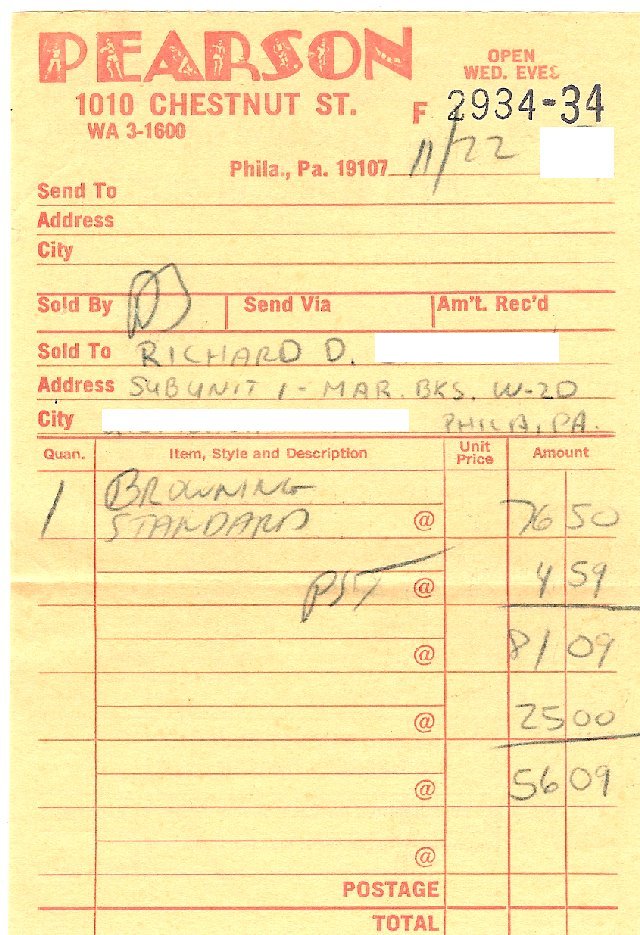 PEARSON
OPEN
WED. EVES
1010 CHESTNUT ST.
WA 3-1600
F 2934-34
Phila., Pa. 19107 11/22
Send To
Address
City
Sold By Send Via Am't. Rec'd
Sold To RICHARD D.
Address SUBUNIT 1 - MAR. BKS. W-2D
City PHILA, PA.
Quan. Item, Style and Description Unit Price Amount
1 BROWNING
STANDARD @ 76 50
PST @ 4 59
@ 81 09
@ 25 00
@ 56 09
@
POSTAGE
TOTAL